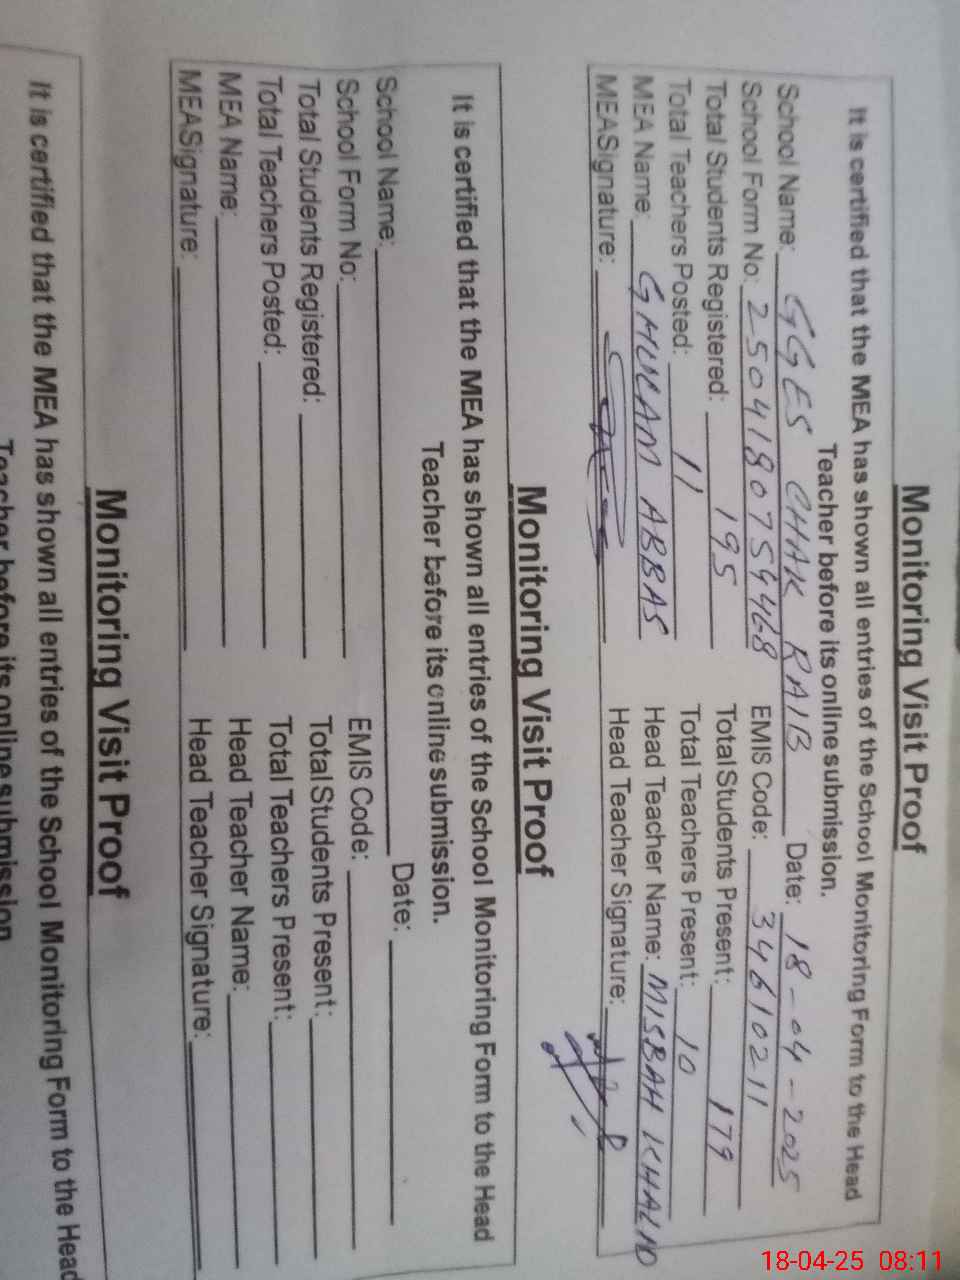 Monitoring Visit Proof
It is certified that the MEA has shown all entries of the School Monitoring Form to the Head
Teacher before its online submission.
School Name: GGES CHAK RAIB Date: 18-04-2025
School Form No: 250418075944 68 EMIS Code: 34610211
Total Students Registered: 195 Total Students Present: 179
Total Teachers Posted: 11 Total Teachers Present: 10
MEA Name: GHULAM ABBAS Head Teacher Name: MISBAH KHALID
MEASignature: Head Teacher Signature:
Monitoring Visit Proof
It is certified that the MEA has shown all entries of the School Monitoring Form to the Head
Teacher before its online submission.
School Name: Date:
School Form No: EMIS Code:
Total Students Registered: Total Students Present:
Total Teachers Posted: Total Teachers Present:
MEA Name: Head Teacher Name:
MEASignature: Head Teacher Signature:
Monitoring Visit Proof
It is certified that the MEA has shown all entries of the School Monitoring Form to the Head
Teacher before its online submission
18-04-25 08:11